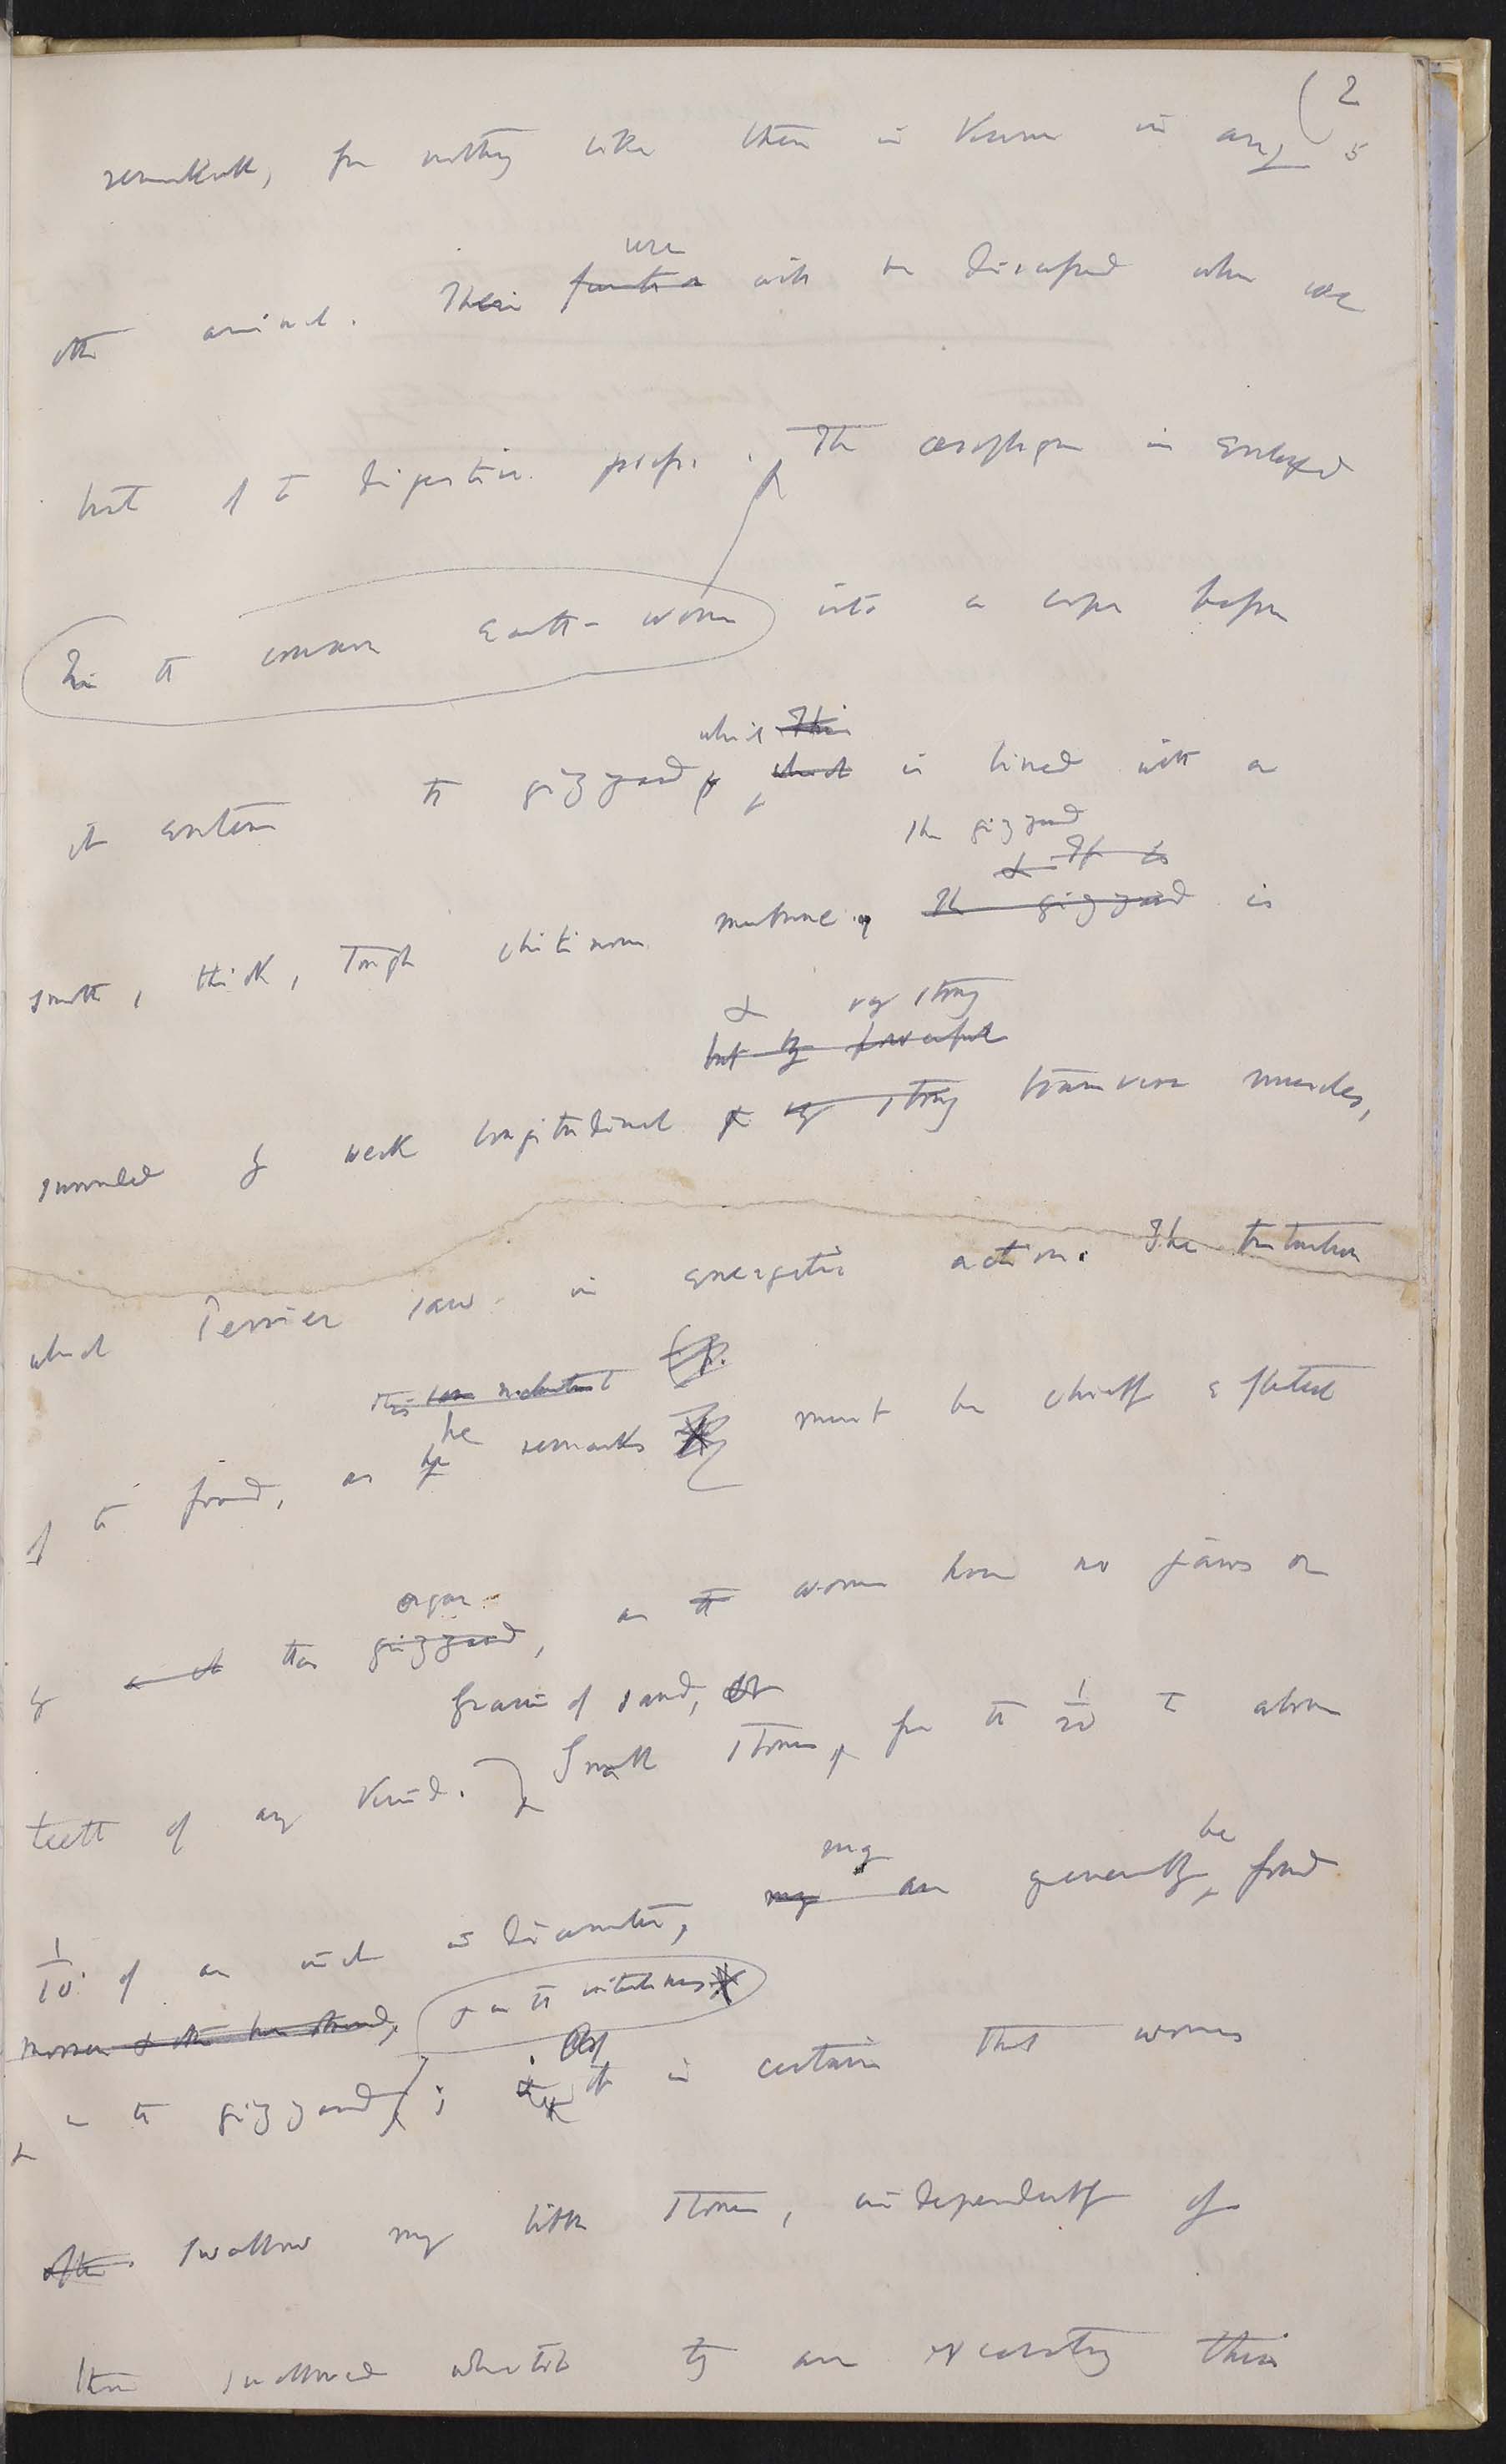 ( 2
5
remarkable, for nothing like them is known in any
other animal. Their function use will be discussed when we
treat of the digestive process. The oesophagus is enlarged
in the common earth-worm into a crop before
it enters the gizzard, which This
which is lined with a
The gizzard
& It is
smooth, thick, tough chitinous membrane, The gizzard is
& very strong
but by powerful
surrounded by weak longitudinal & very strong transverse muscles,
which Perrier saw in energetic action. The trituration
of the food, as he remarks must be chiefly effected
organ
by this gizzard, as the worms have no jaws or
Grains of sand, or
teeth of any kind. Small stones, from the 1/20 to above
may be
1/10 of an inch in diameter, may are generally found
& in the intestines
in the gizzard; it is certain that worms
often swallow many little stones, independently of
those swallowed whilst they are excavating their